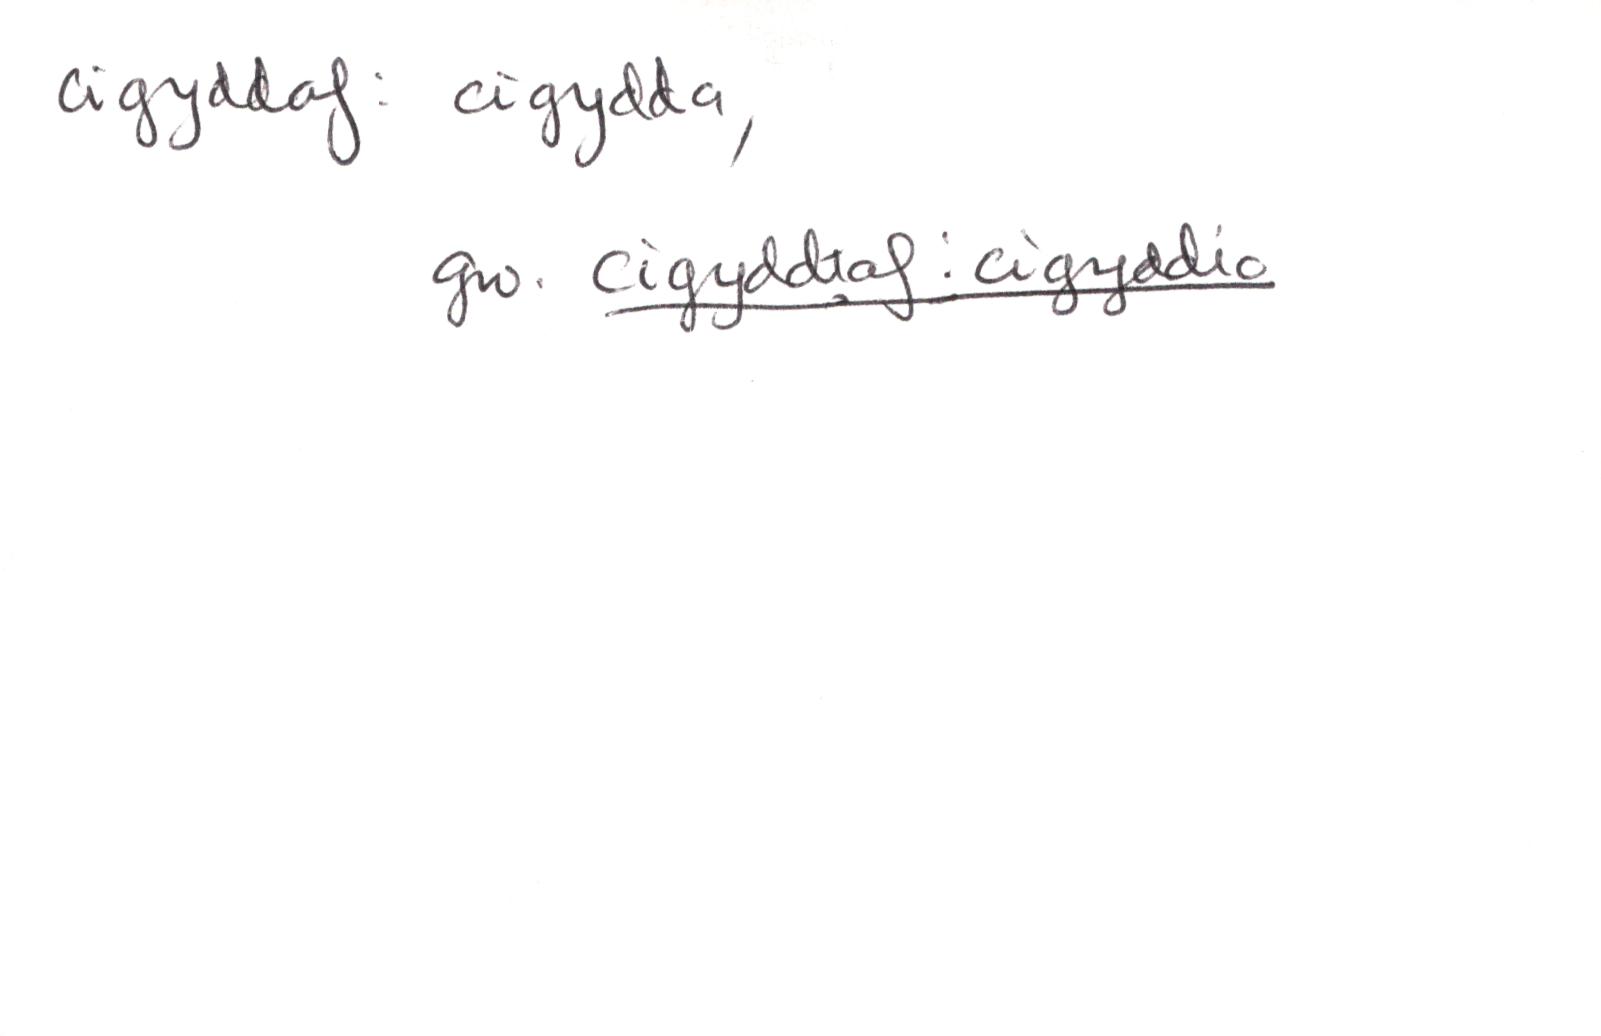 cigyddaf: cigydda,
gw. cigyddiaf: cigyddio